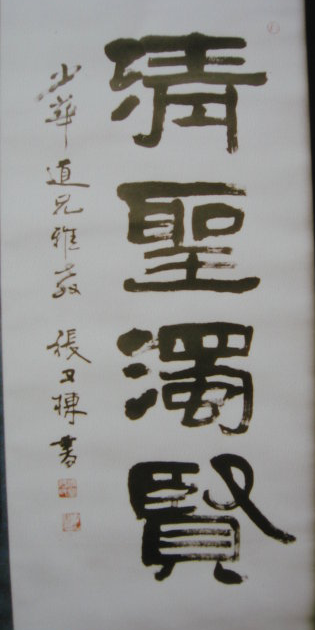 清聖濁賢
少華道兄雅教 張又棟書